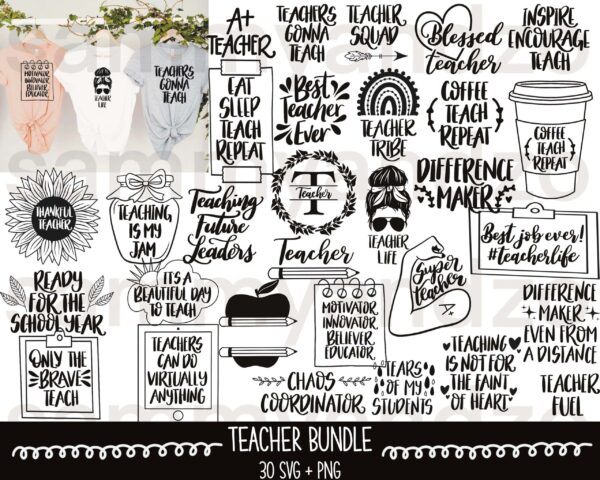 MOTIVATOR.
INNOVATOR.
BELIEVER.
EDUCATOR.
TEACHER
LIFE
TEACHERS
GONNA
TEACH
A+
TEACHER
TEACHERS
GONNA
TEACH
TEACHER
SQUAD
Blessed
teacher
INSPIRE
ENCOURAGE
TEACH
EAT
SLEEP
TEACH
REPEAT
Best
Teacher
Ever
TEACHER
TRIBE
COFFEE
TEACH
REPEAT
COFFEE
TEACH
REPEAT
THANKFUL
TEACHER
TEACHING
IS MY
JAM
Teaching
Future
Leaders
T
Teacher
TEACHER
LIFE
DIFFERENCE
MAKER
Best job ever!
#teacherlife
READY
FOR THE
SCHOOL YEAR
IT'S A
BEAUTIFUL DAY
TO TEACH
Teacher
MOTIVATOR.
INNOVATOR.
BELIEVER.
EDUCATOR.
Super
teacher
DIFFERENCE
MAKER
EVEN FROM
A DISTANCE
ONLY THE
BRAVE
TEACH
TEACHERS
CAN DO
VIRTUALLY
ANYTHING
CHAOS
COORDINATOR
TEARS
OF MY
STUDENTS
TEACHING
IS NOT FOR
THE FAINT
OF HEART
TEACHER
FUEL
TEACHER BUNDLE
30 SVG + PNG
sammyandzo